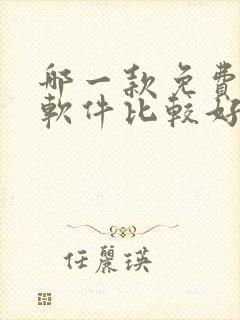 哪一款免費
軟件比較好
任麗瑛